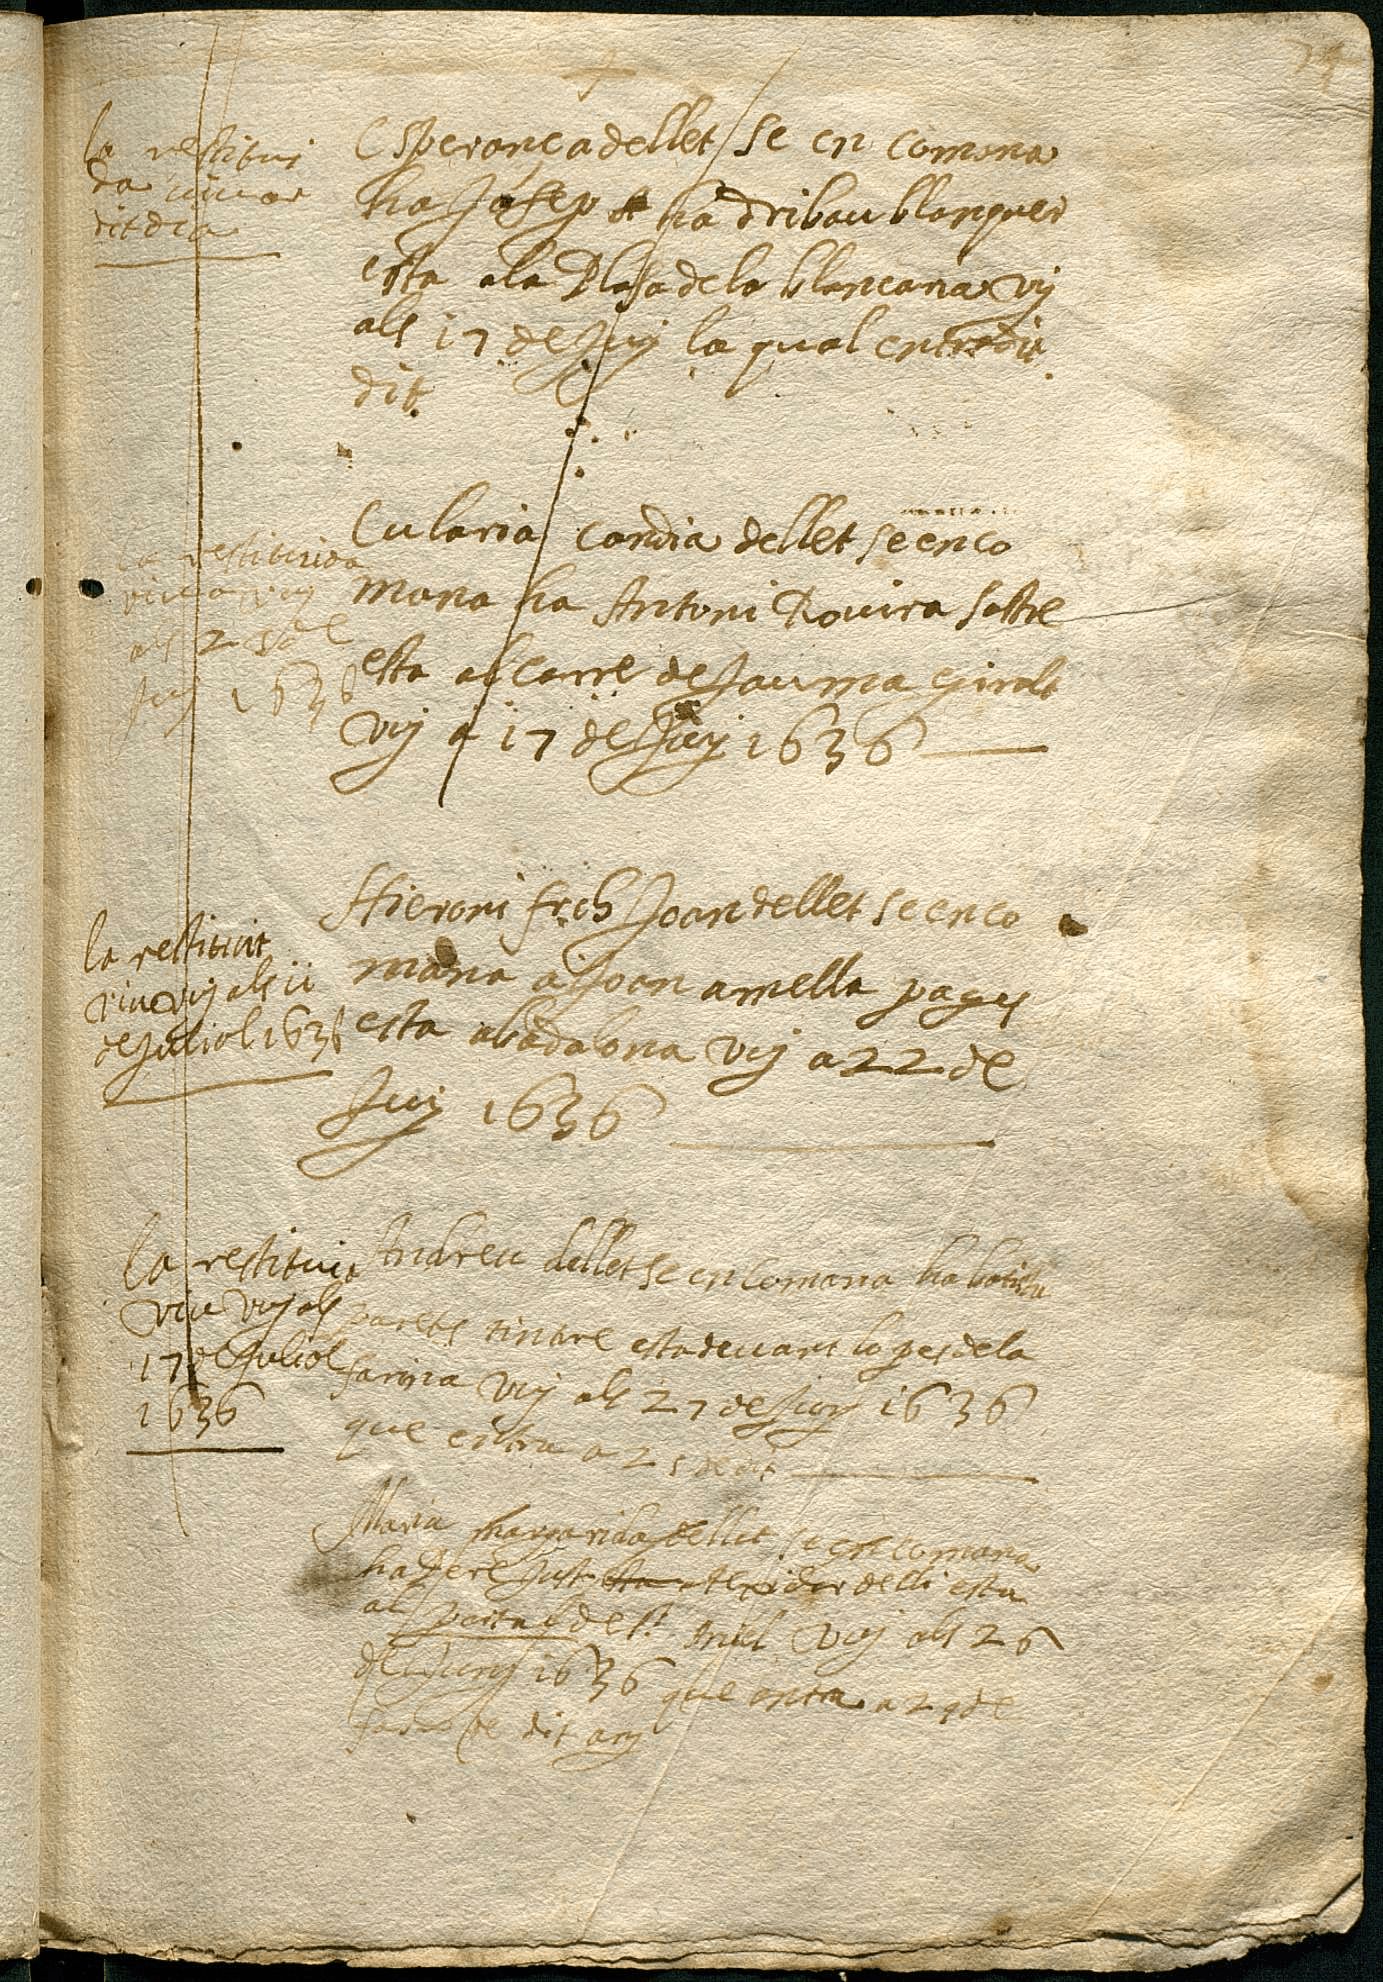 74
la restitui
da viva
dit dia
Esperansa de llet se en comana
ha Josep ha dribau blanquer
esta a la Plasa de la blancaria vij
als 17 de Juij la qual entra die
dit
la restituida
viva vuj
als 2 de
Juij 1636
Eularia Candia de llet se en co
mana ha Antoni Rovira sastre
esta al carre de Jauma Giralt
vuj a 17 de Juij 1636
lo restituit
viu vuj als 11
de Juliol 1636
Hieroni frch Joan de llet se en co
mana a Joan amella pages
esta a badalona vuj a 22 de
Juij 1636
lo restituit
viu vuj als
17 de Juliol
1636
Andreu de llet se en comana ha batista
pareas tintare esta devant lo pes de la
farina vuj als 27 de Juny 1636
que entra a 25 de dit
Maria Margarida de llet se en comana
ha Pere Just esta texidor de lli esta
al portal de St. Anil vuj als 26
de Juny 1636 que entra a 29 de
dit any